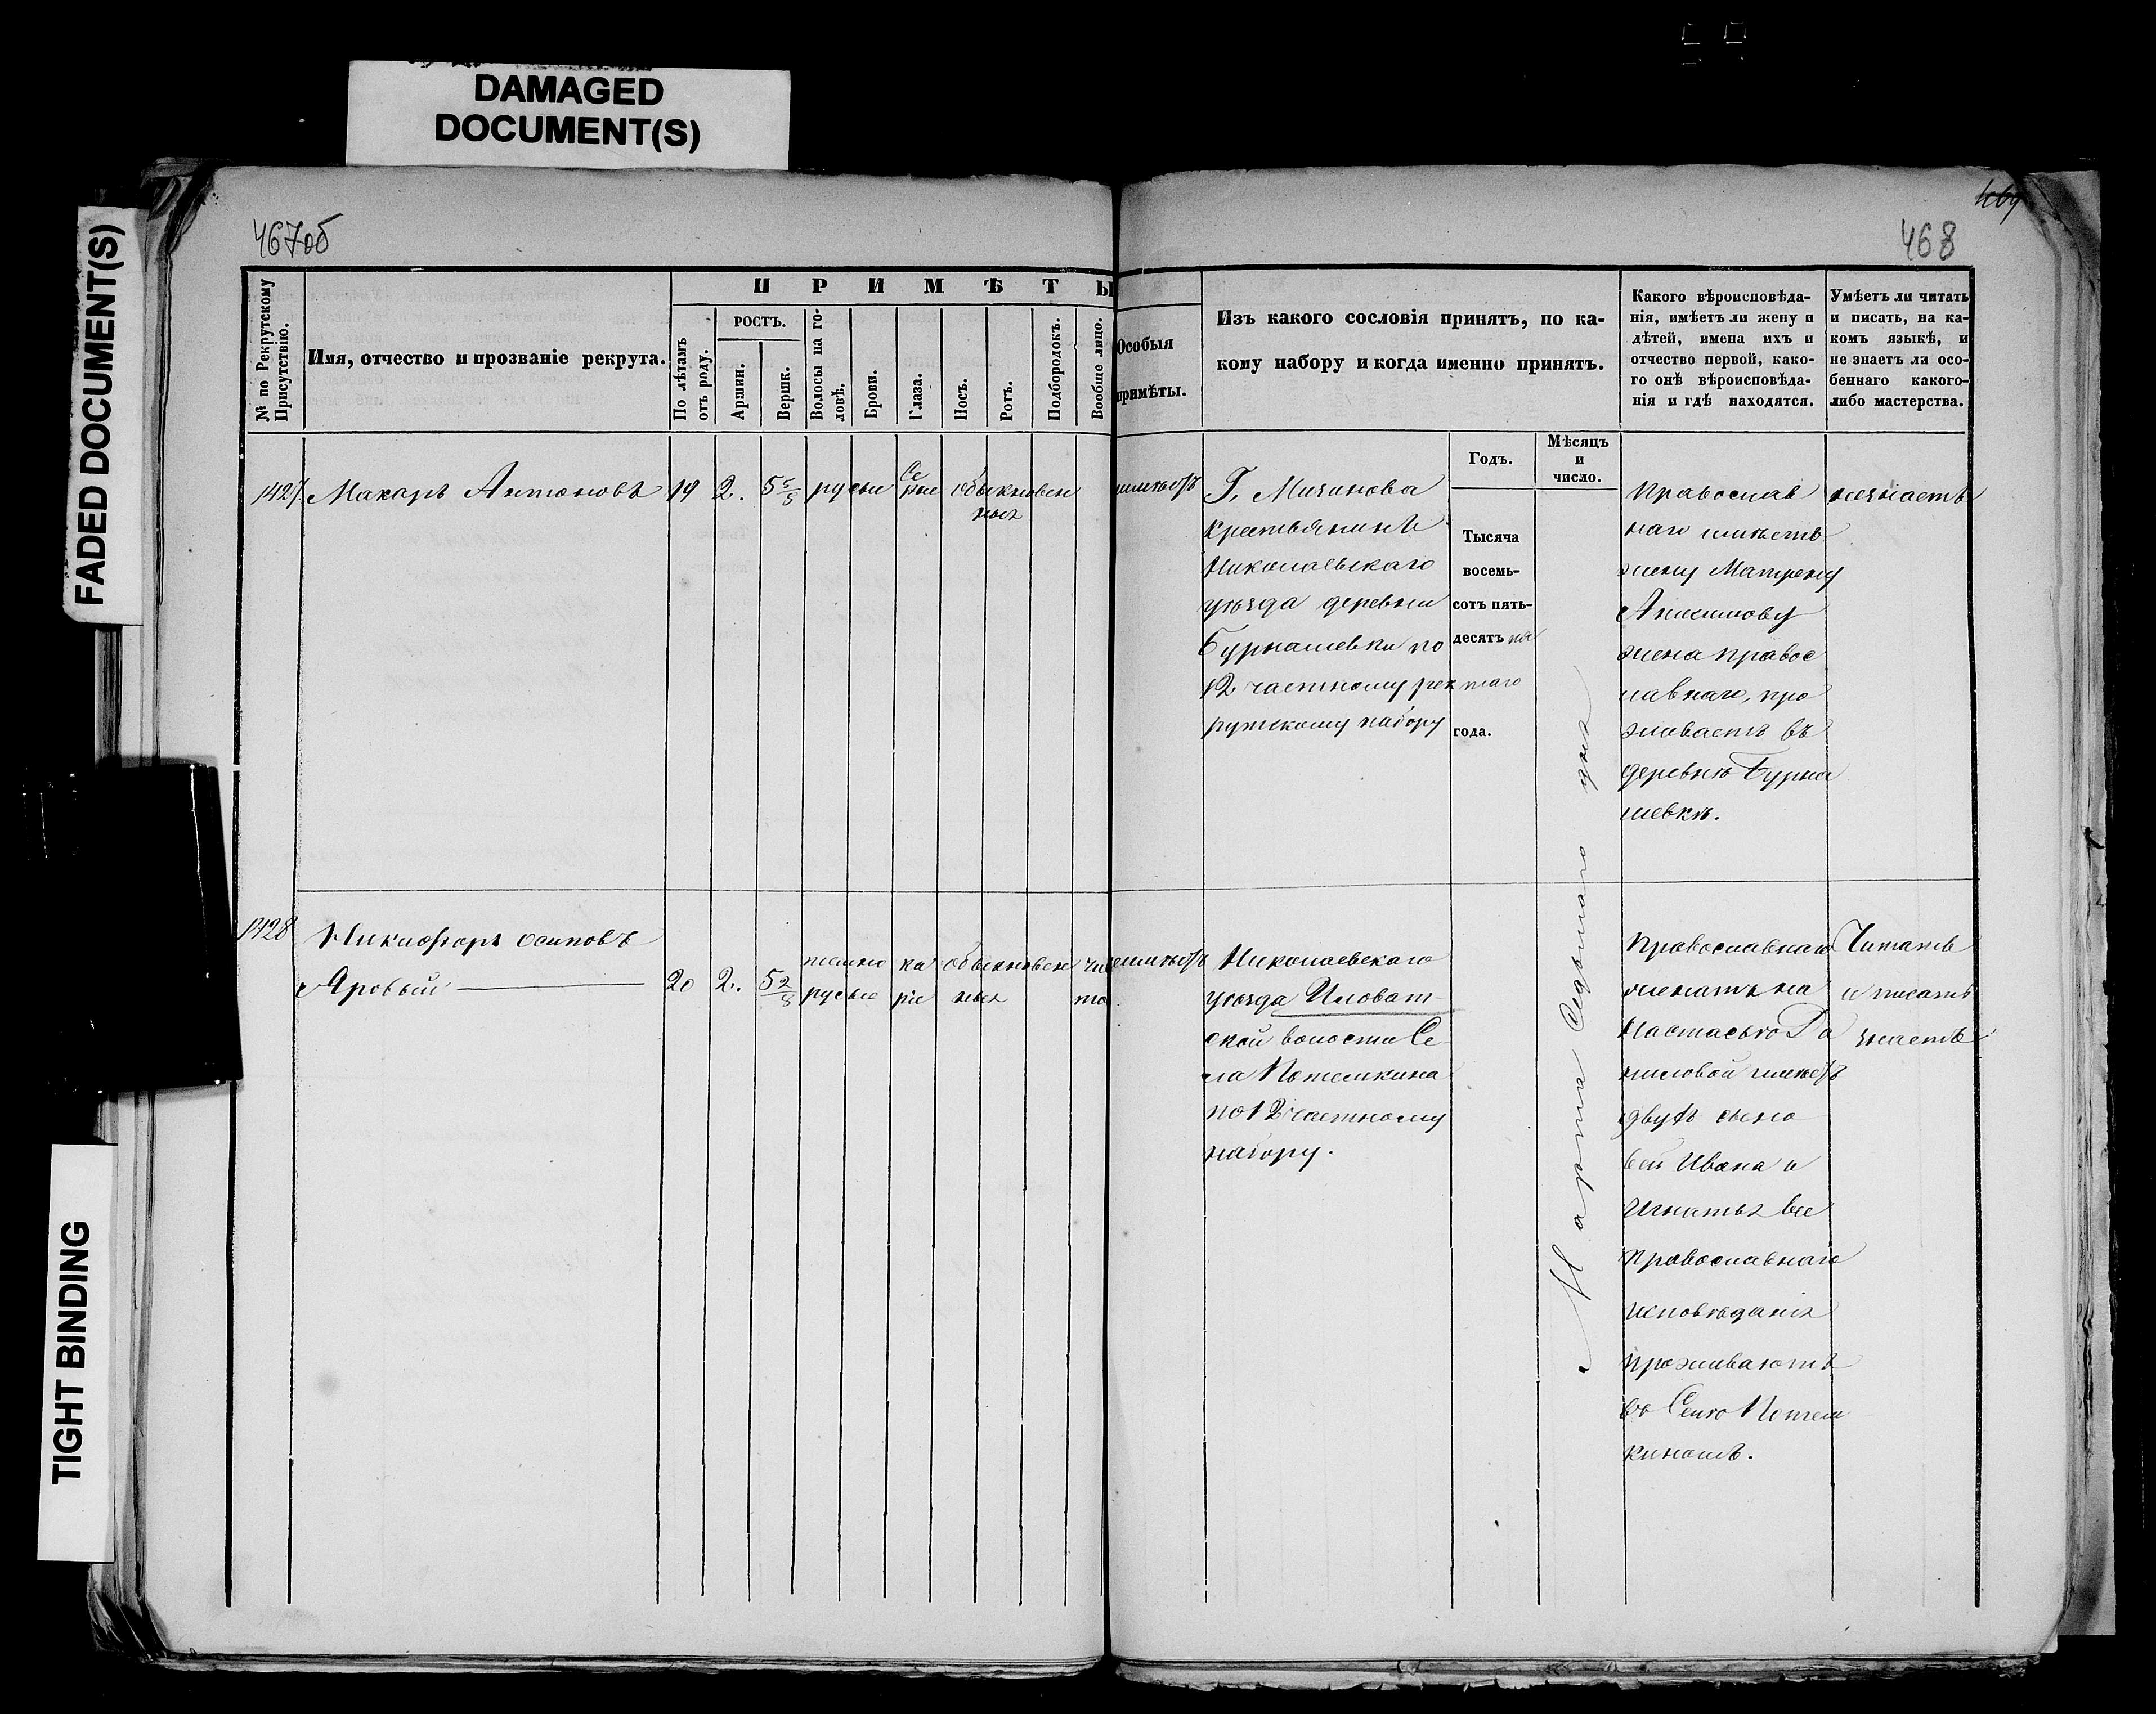 DAMAGED
DOCUMENT(S)
FADED DOCUMENT(S)
TIGHT BINDING
467об
468
№ по Рекрутскому
Присутствію.
Имя, отчество и прозваніе рекрута.
ПРИМѢТЫ
По лѣтамъ
отъ роду.
РОСТЪ.
Аршин.
Вершк.
Волосы на го-
ловѣ.
Брови.
Глаза.
Носъ.
Ротъ.
Подбородокъ.
Вообще лицо.
Особыя
примѣты.
Изъ какого сословія принятъ, по ка-
кому набору и когда именно принятъ.
Годъ.
Мѣсяцъ
и
число.
Какого вѣроисповѣда-
нія, имѣетъ ли жену и
дѣтей, имена ихъ и
отчество первой, како-
го онѣ вѣроисповѣда-
нія и гдѣ находятся.
Умѣетъ ли читать
и писать, на ка-
комъ языкѣ, и
не знаетъ ли осо-
беннаго какого-
либо мастерства.
1427
Макаръ Антоновъ
19
2.
5 5/8
русыи
Се
рые
обыкновен
ныя
Г. Мизинова
крестьянинъ
Николаевскаго
уѣзда деревни
Бурнашевки по
12 частному рек
рутскому набору
Тысяча
восемь-
сотъ пять-
десятъ пя
таго
года.
Марта Седьмаго дня
Православ
наго имѣетъ
жену Матрену
Анисимову
жена правос
лавнаго, про
живаетъ въ
деревнѣ Бурна
шевкѣ.
незнаетъ
1428
Никифоръ Осиповъ
Яровый
20
2.
5 2/8
темно
русые
ка
ріе
обыкновен
ныя
чис
то
Николаевскаго
уѣзда Иловат-
ской волости Се
ла Потемкина
по 12 частному
набору.
Православнаго
женатъ на
Настасью Га
ниловой имѣетъ
двухъ сыно
вей Ивана и
Игнатья все
Православнаго
исповѣданія
проживаютъ
въ Селѣ Потем
киномъ.
Читать
и писать
знаетъ